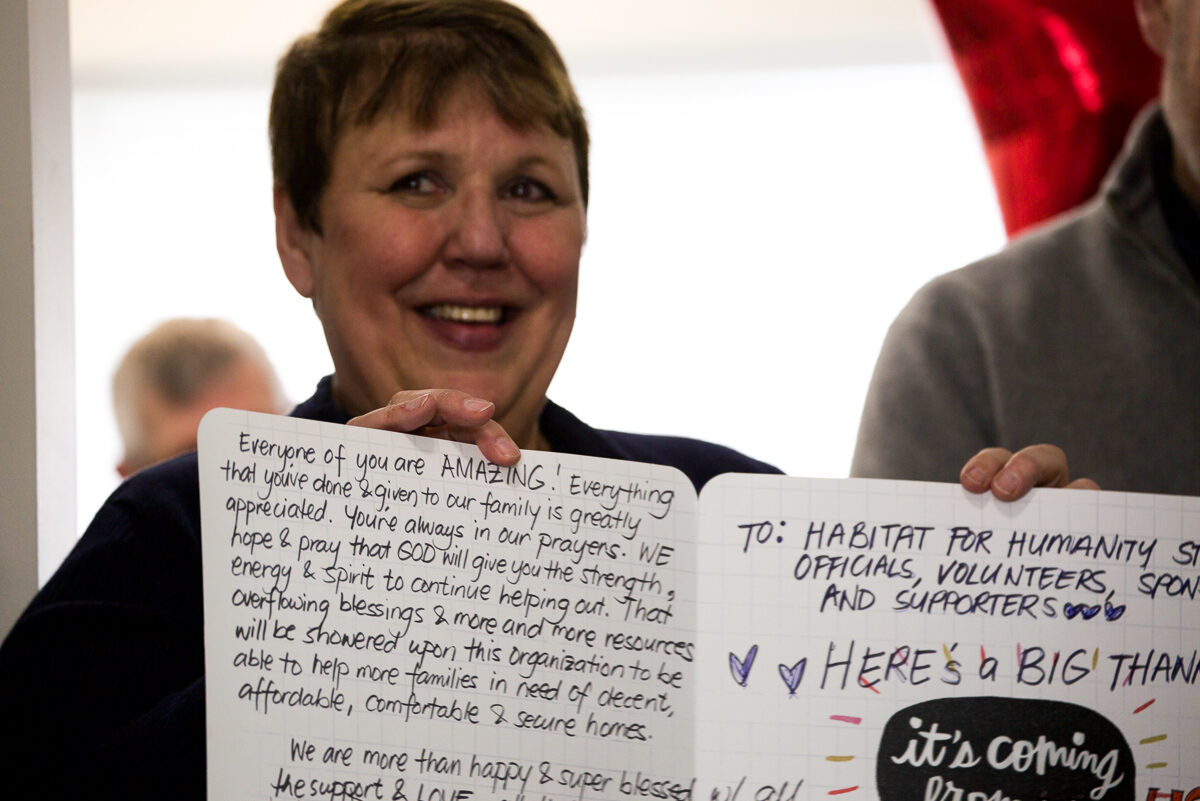 Everyone of you are AMAZING! Everything
that you've done & given to our family is greatly
appreciated. You're always in our prayers. WE
hope & pray that GOD will give you the strength,
energy & spirit to continue helping out. That
overflowing blessings & more and more resources
will be showered upon this organization to be
able to help more families in need of decent,
affordable, comfortable & secure homes.
We are more than happy & super blessed w/ all
the support & LOVE
TO: HABITAT FOR HUMANITY ST
OFFICIALS, VOLUNTEERS, SPON
AND SUPPORTERS
HERE's a BIG THAN
it's coming
from